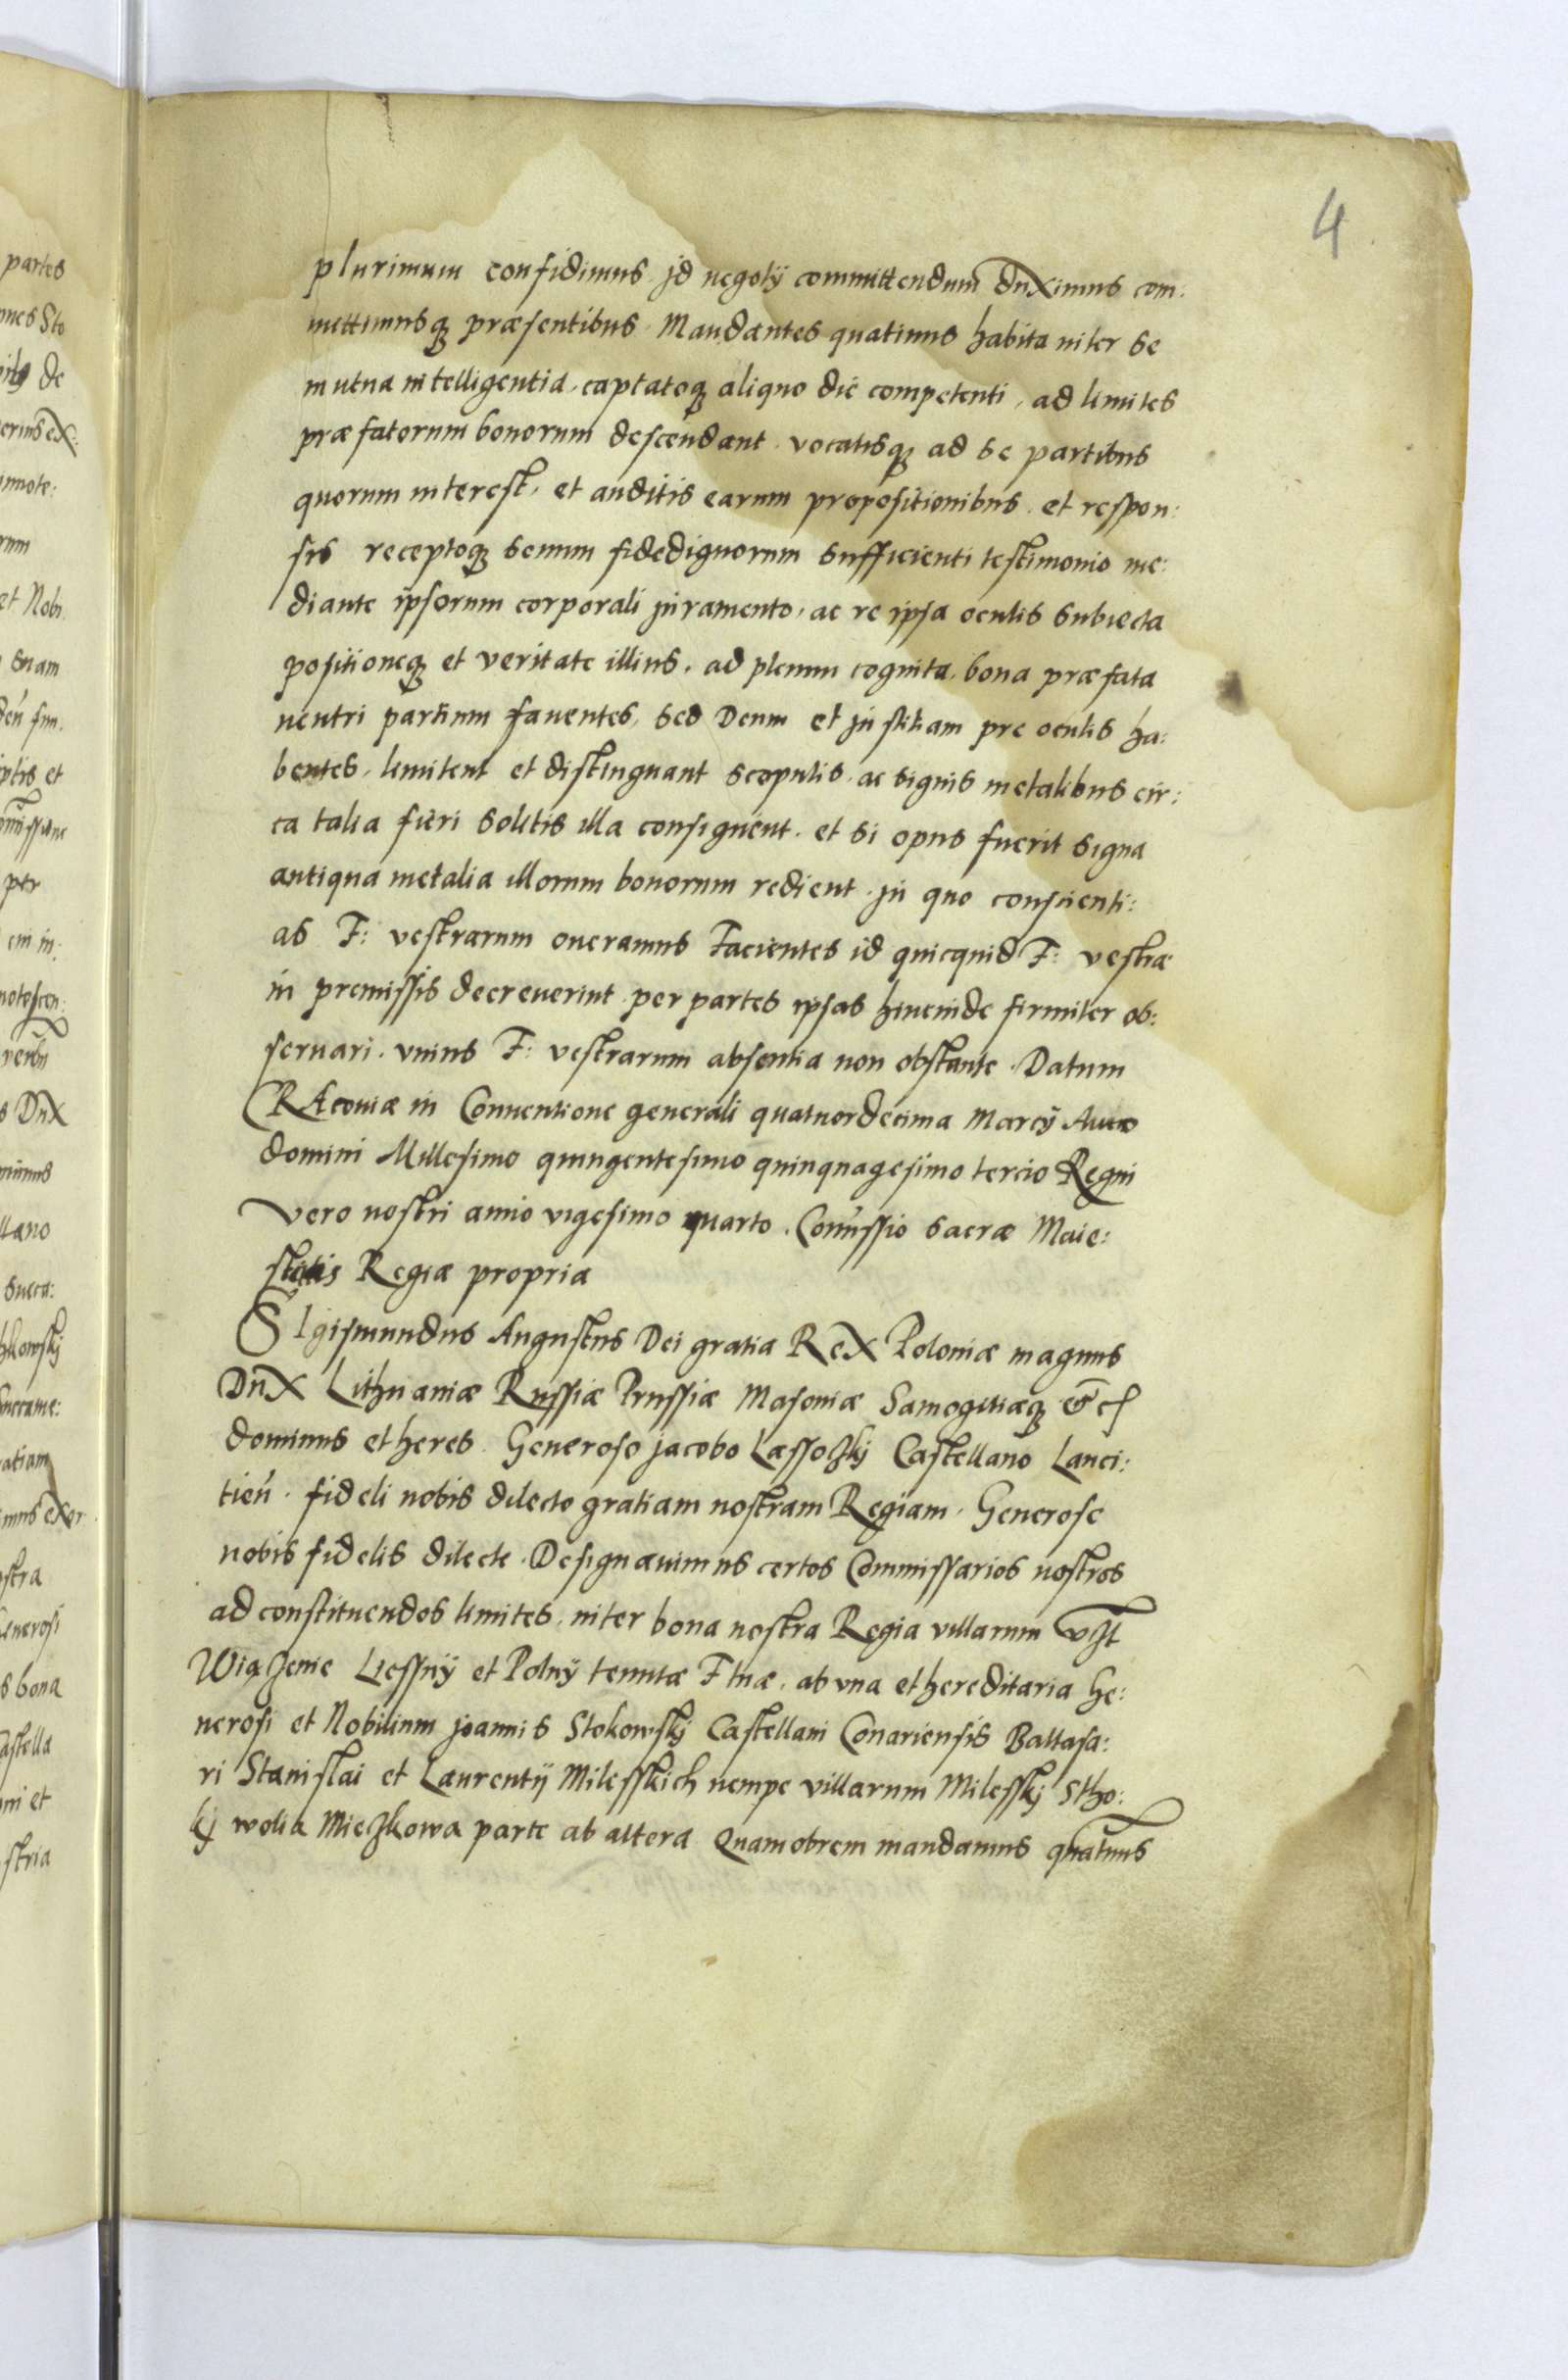 4
plurimum confidimus jd negotÿ committendum duximus com:
mittimusq; præsentibus. Mandantes quatinus habita inter se
mutua intelligentia, captatoq; aliquo die competenti, ad limites
præfatorum bonorum descendant. vocatisq; ad se partibus
quorum interest, et auditis earum propositionibus. et respon:
sis receptoq; senum fidedignorum sufficienti testimonio me:
diante ipsorum corporali juramento, ac re ipsa oculis subiecta
positioneq; et veritate illius, ad plenum cognita, bona præfata
neutri partium fauentes, sed Deum et justitiam pre oculis ha:
bentes, limitent et distinguant scopulis, ac signis metalibus cir:
ca talia fieri solitis illa consignent. et si opus fuerit signa
antiqua metalia illorum bonorum redient. jn quo conscienti:
as F: vestrarum oneramus Facientes id quicquid F: vestræ
in premissis decreuerint per partes ipsas hincinde firmiter ob:
seruari. vnius F: vestrarum absentia non obstante. Datum
CRAcouiæ in Conuentione generali quatuordecima Marcÿ Anno
domini Millesimo quingentesimo quinquagesimo tercio Regni
vero nostri anno vigesimo quarto. Comissio sacræ Maie:
statis Regiæ propria
SIgismundus Augustus Dei gratia Rex Poloniæ magnus
Dux Lithuaniæ Russiæ Prussiæ Masoniæ Samogitiæq; &c
dominus et heres. Generoso jacobo Lassozkj Castellano Lanci:
tień. fideli nobis dilecto gratiam nostram Regiam. Generose
nobis fidelis dilecte. Designauimus certos Commissarios nostros
ad constituendos limites, inter bona nostra Regia villarum vzt
Wiązenie Liessnÿ et Polnÿ tenutæ F tuæ, ab vna et hereditaria Ge:
nerosi et Nobilium joannis Stokowskj Castellani Conariensis Baltasa:
ri Stanislai et Laurentÿ Milesskich nempe villarum Milesskj Stho:
kj wolia Miezkowa parte ab altera Quamobrem mandamus quatinus
partes
ones Sto
de
erius ex:
innote:
rum
et Nobi
suam
per
notescen:
s Dux
llano
ostra
Generosi
s bona
Castella
ni et
stria